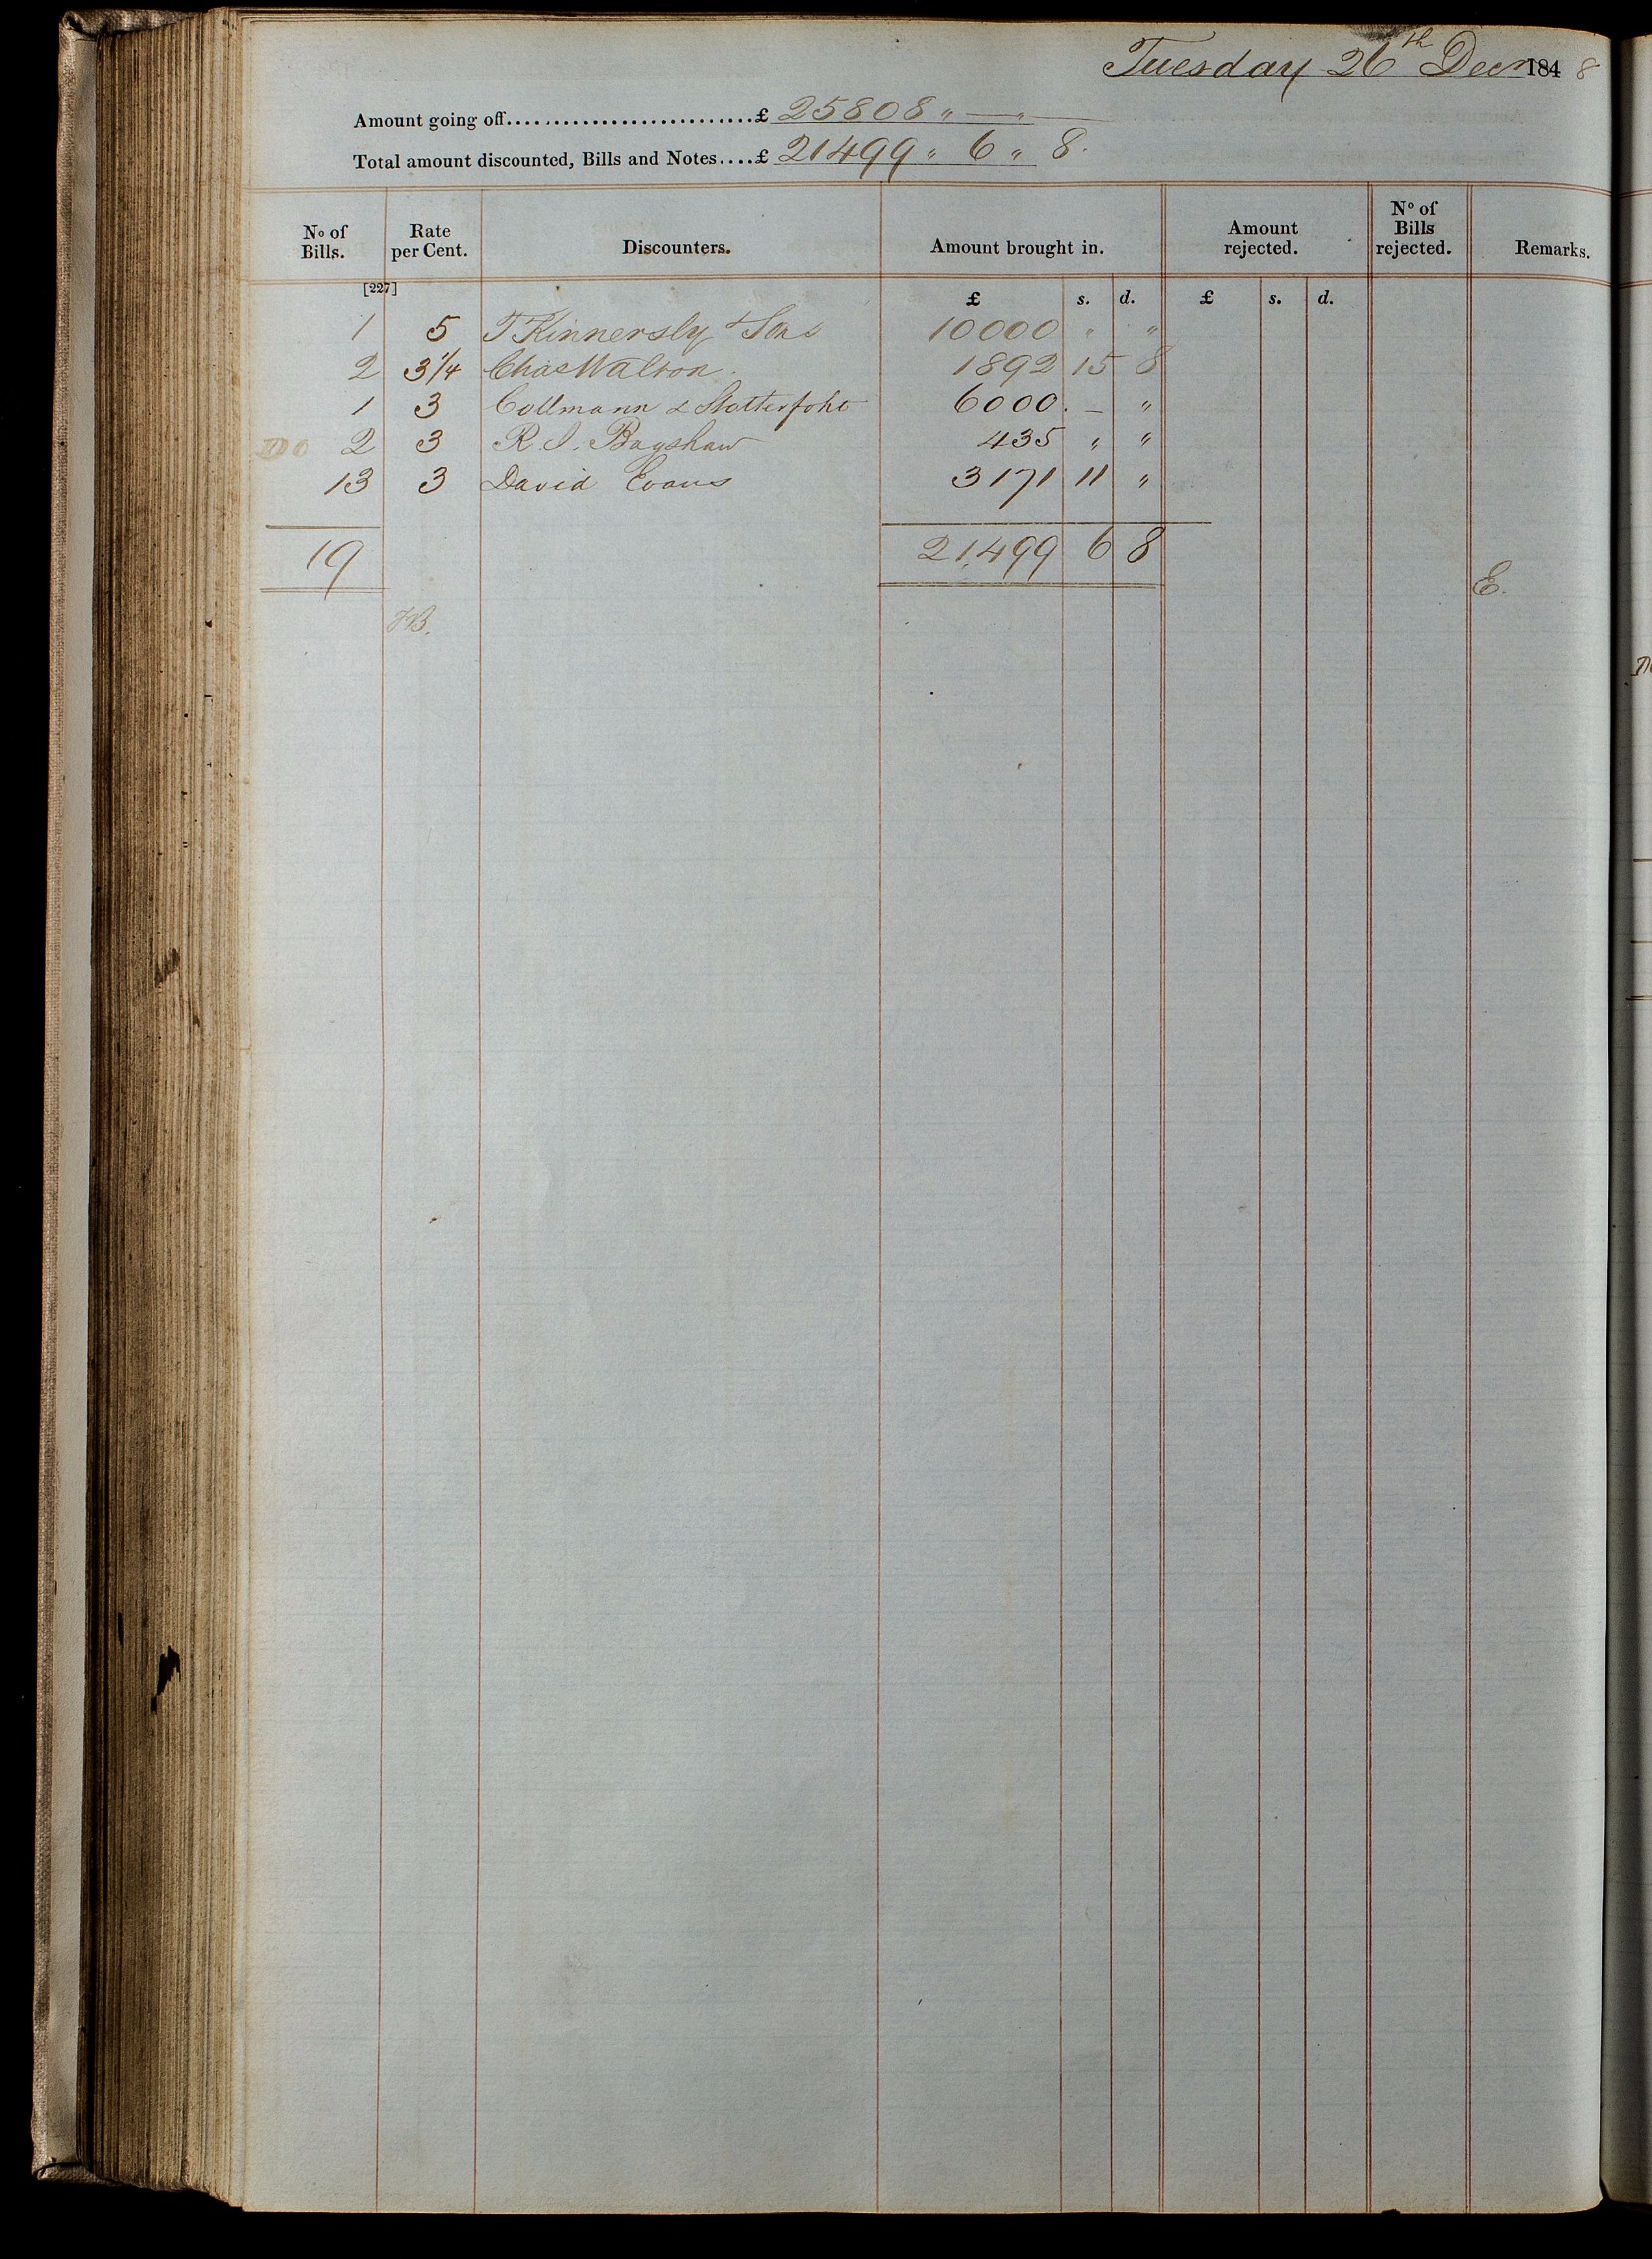 Tuesday 26th Decr 1848
Amount going off...........................£ 25808 " — "
Total amount discounted, Bills and Notes....£ 21499 " 6 " 8.
No of Bills. Rate per Cent. Discounters. Amount brought in. Amount rejected. No of Bills rejected. Remarks.
[227] £ s. d. £ s. d.
1 5 T Kinnersly & Sons 10000 " "
2 3 1/4 Chas Walton. 1892 15 8
1 3 Collmann & Stolterfoht 6000. — "
2 3 R. I. Bagshaw 435 " "
13 3 David Evans 3171 11 "
19 21,499 6 8
E.